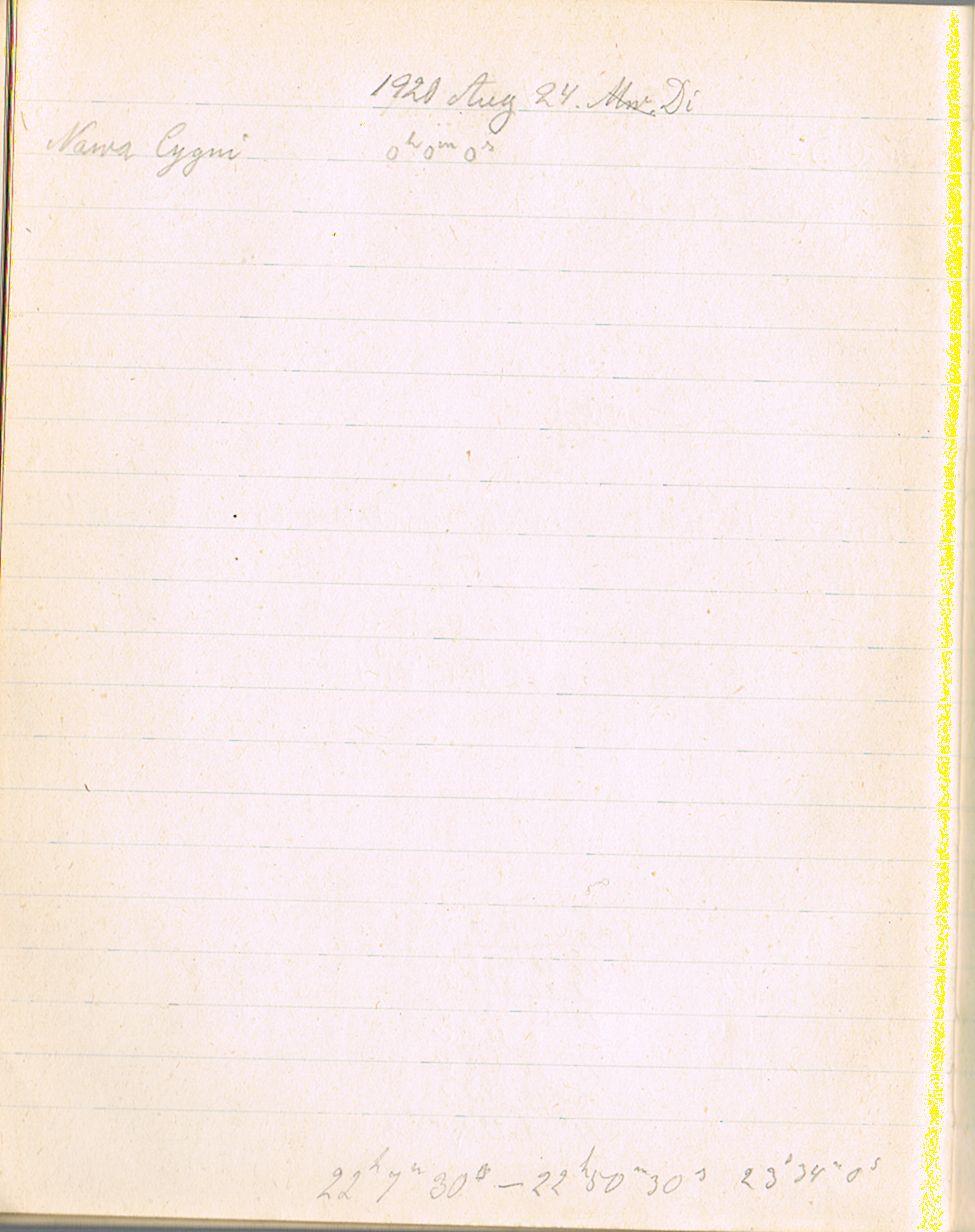 1920 Aug 24. Mw. Di
Nova Cygni 0ʰ 0ᵐ 0ˢ
22ʰ 7ᵐ 30ˢ – 22ʰ 50ᵐ 30ˢ 23ʰ 34ᵐ 0ˢ